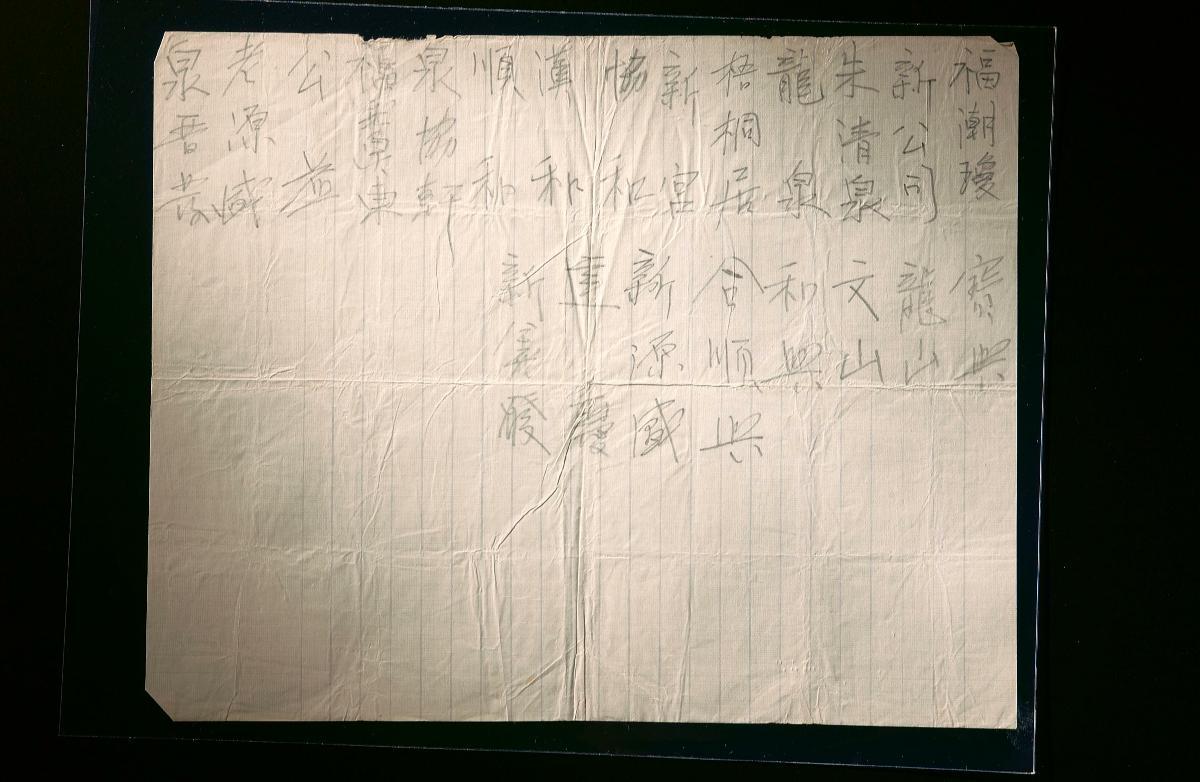 福潮瓊
新公司
朱清泉
龍泉
梧桐居
新宮
協和
漢和
順和
泉協軒
福臺東
公益
老源盛
泉晉芳
寶興
龍山
文山
和興
合順興
新源盛
重慶
新 發